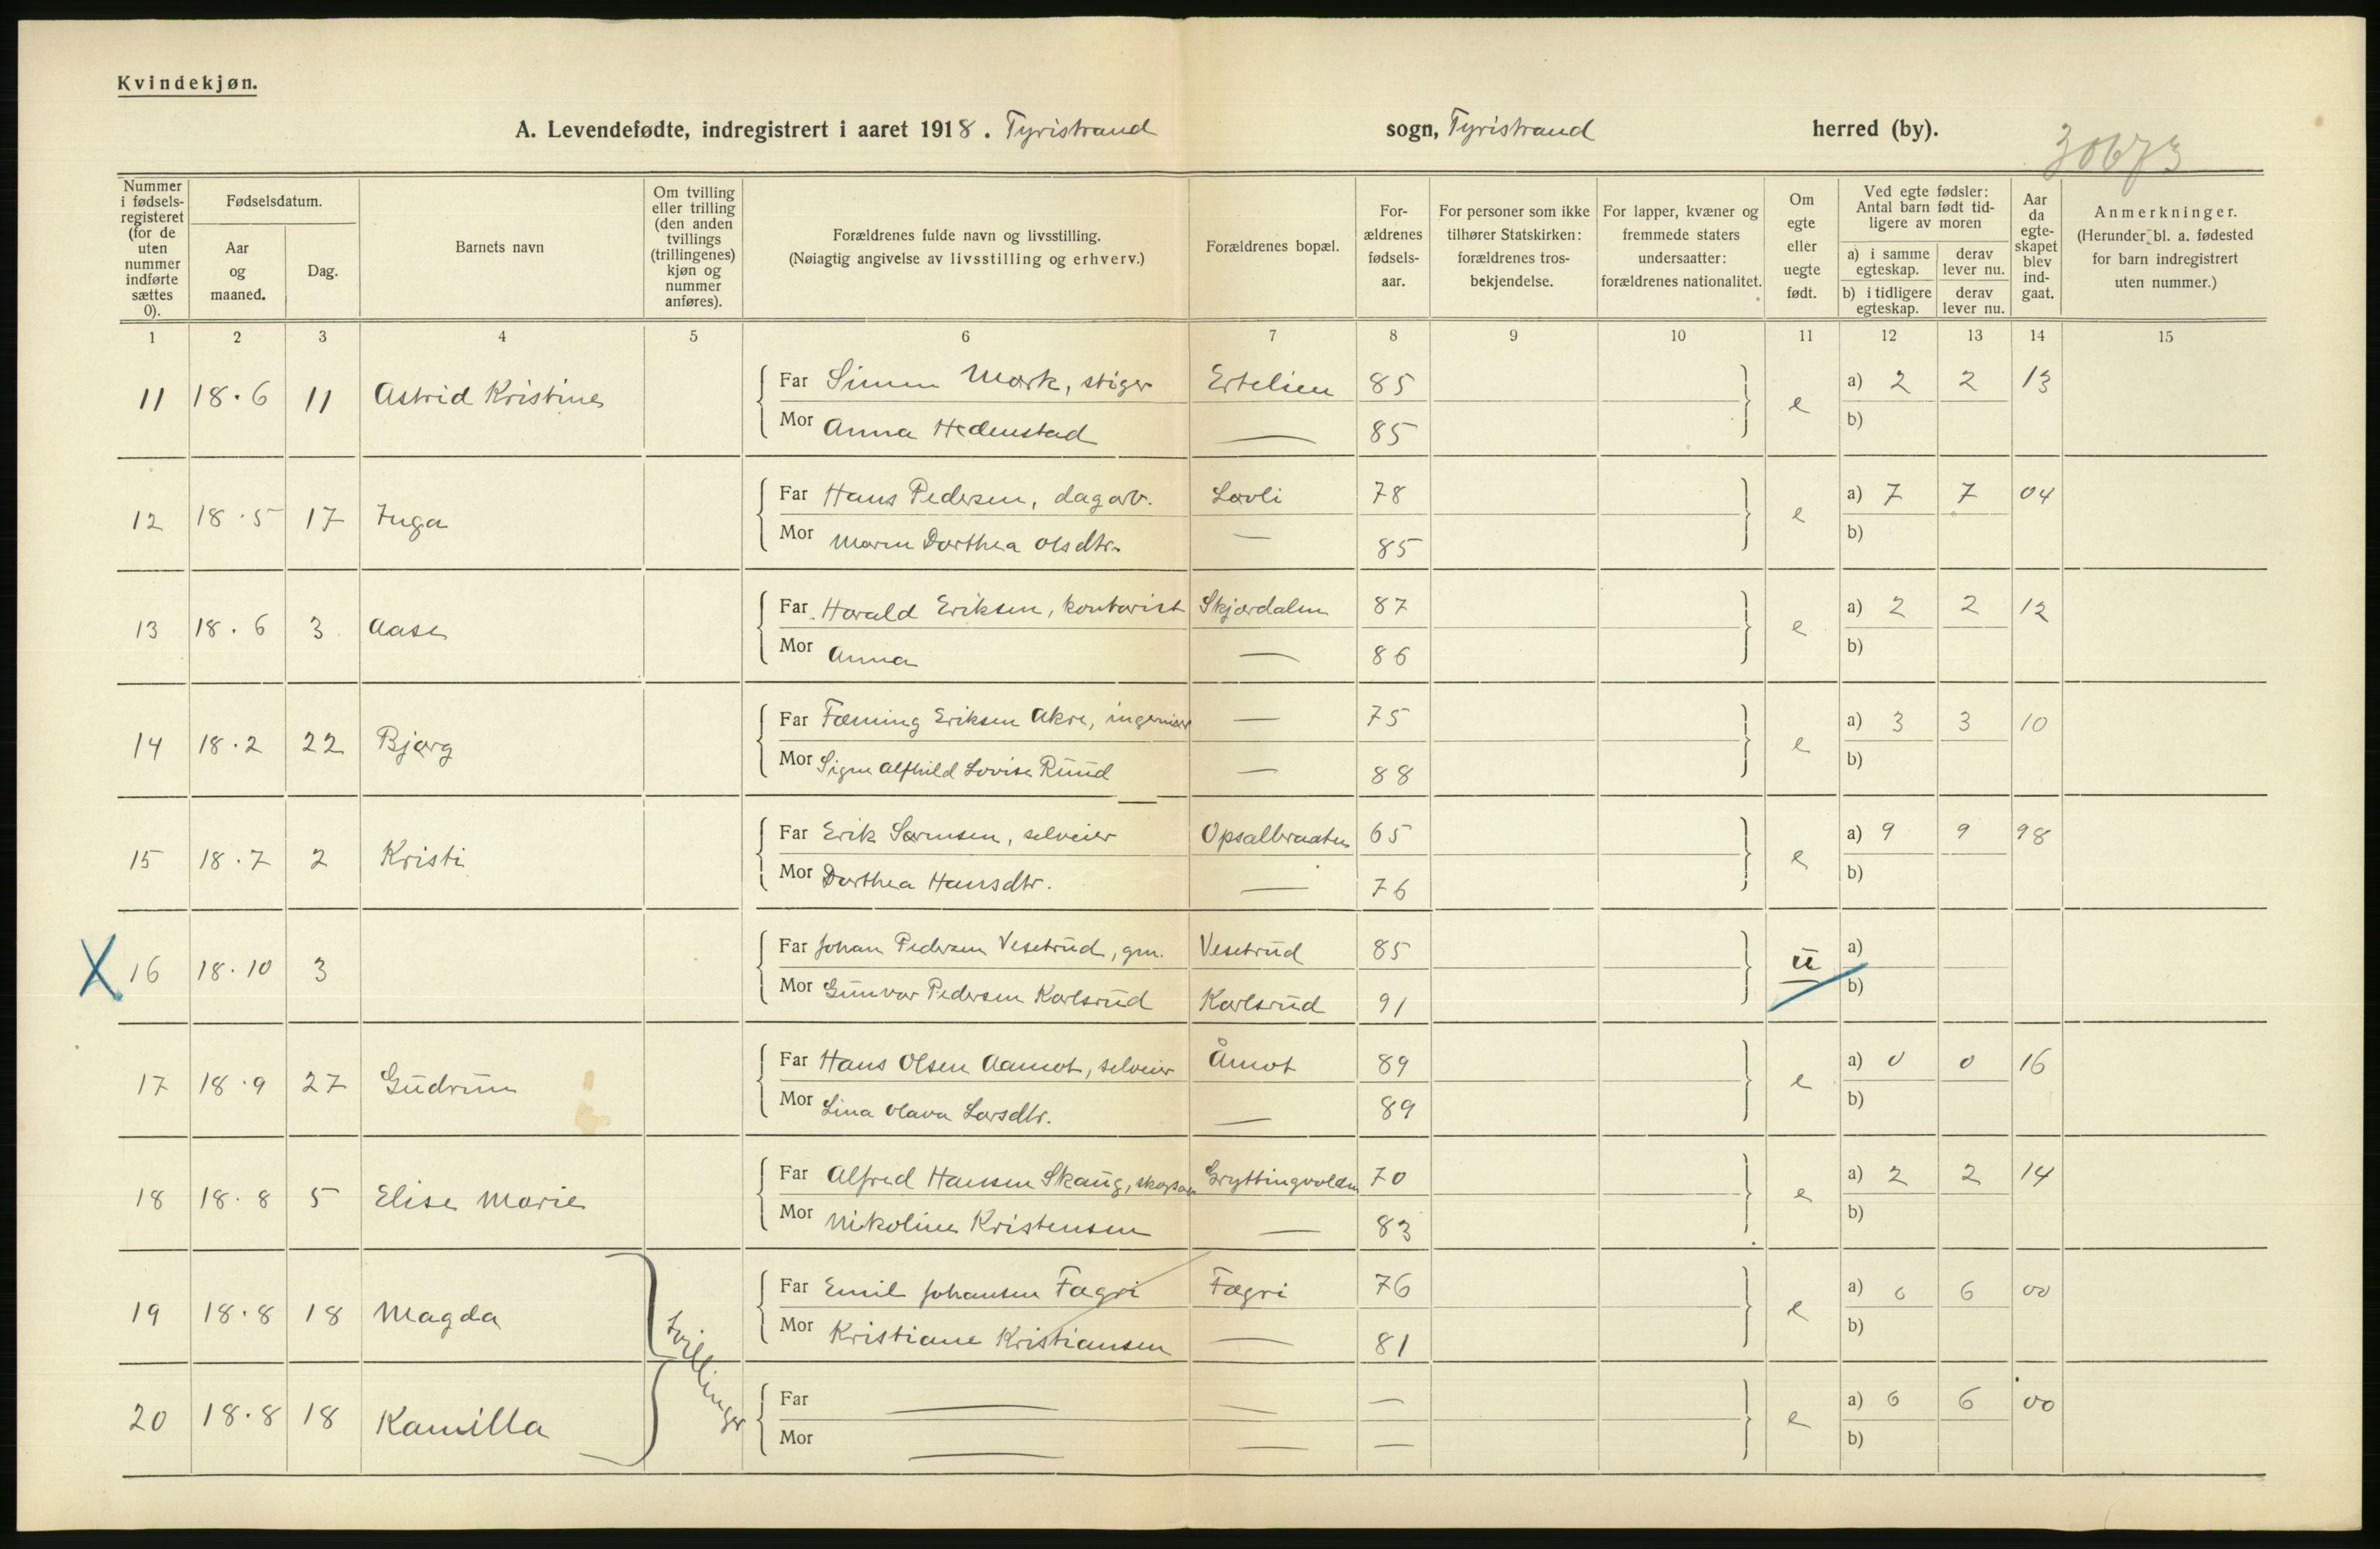 Kvindekjøn.
A. Levendefødte, indregistrert i aaret 1918. Tyristrand sogn, Tyristrand herred (by).
30673
Nummer i fødselsregisteret (for de uten nummer indførte sættes 0).
Fødselsdatum.
Aar og maaned.
Dag.
Barnets navn
Om tvilling eller trilling (den anden tvillings (trillingenes) kjøn og nummer anføres).
Forældrenes fulde navn og livsstilling.
(Nøiagtig angivelse av livsstilling og erhverv.)
Forældrenes bopæl.
Forældrenes fødselsaar.
For personer som ikke tilhører Statskirken: forældrenes trosbekjendelse.
For lapper, kvæner og fremmede staters undersaatter: forældrenes nationalitet.
Om egte eller uegte født.
Ved egte fødsler: Antal barn født tidligere av moren
a) i samme egteskap. derav lever nu.
b) i tidligere egteskap. derav lever nu.
Aar da egteskapet blev indgaat.
Anmerkninger.
(Herunder bl. a. fødested for barn indregistrert uten nummer.)
1 2 3 4 5 6 7 8 9 10 11 12 13 14 15
11 18.6 11 Astrid Kristine Far Simen Mørk, stiger Ertelien 85 e a) 2 2 13
Mor Anna Hedenstad — 85 b)
12 18.5 17 Inga Far Hans Pedersen, dagarb. Lovli 78 e a) 7 7 04
Mor Maren Dorthea Olsdtr. — 85 b)
13 18.6 3 Aase Far Harald Eriksen, kontorist Skjærdalen 87 e a) 2 2 12
Mor Anna — 86 b)
14 18.2 22 Bjørg Far Eriksen Akre, ingeniør — 75 e a) 3 3 10
Mor Signe Alfhild Lovise Ruud — 88 b)
15 18.7 2 Kristi Far Erik Sørensen, selveier Opsalbraaten 65 e a) 9 9 98
Mor Dorthea Hansdtr. — 76 b)
X 16 18.10 3 Far Johan Pedersen Vesetrud, gm. Vesetrud 85 u a)
Mor Gunvor Pedersen Karlsrud Karlsrud 91 b)
17 18.9 27 Gudrun Far Hans Olsen Aamot, selveier Åmot 89 e a) 0 0 16
Mor Lina Olava Larsdtr. — 89 b)
18 18.8 5 Elise Marie Far Alfred Hansen Skaug, Gryttingvolden 70 e a) 2 2 14
Mor Nikoline Kristensen — 83 b)
19 18.8 18 Magda tvillinger Far Emil Johansen Fægri Fægri 76 e a) 6 6 00
Mor Kristiane Kristiansen — 81 b)
20 18.8 18 Kamilla Far — — — e a) 6 6 00
Mor — — — b)